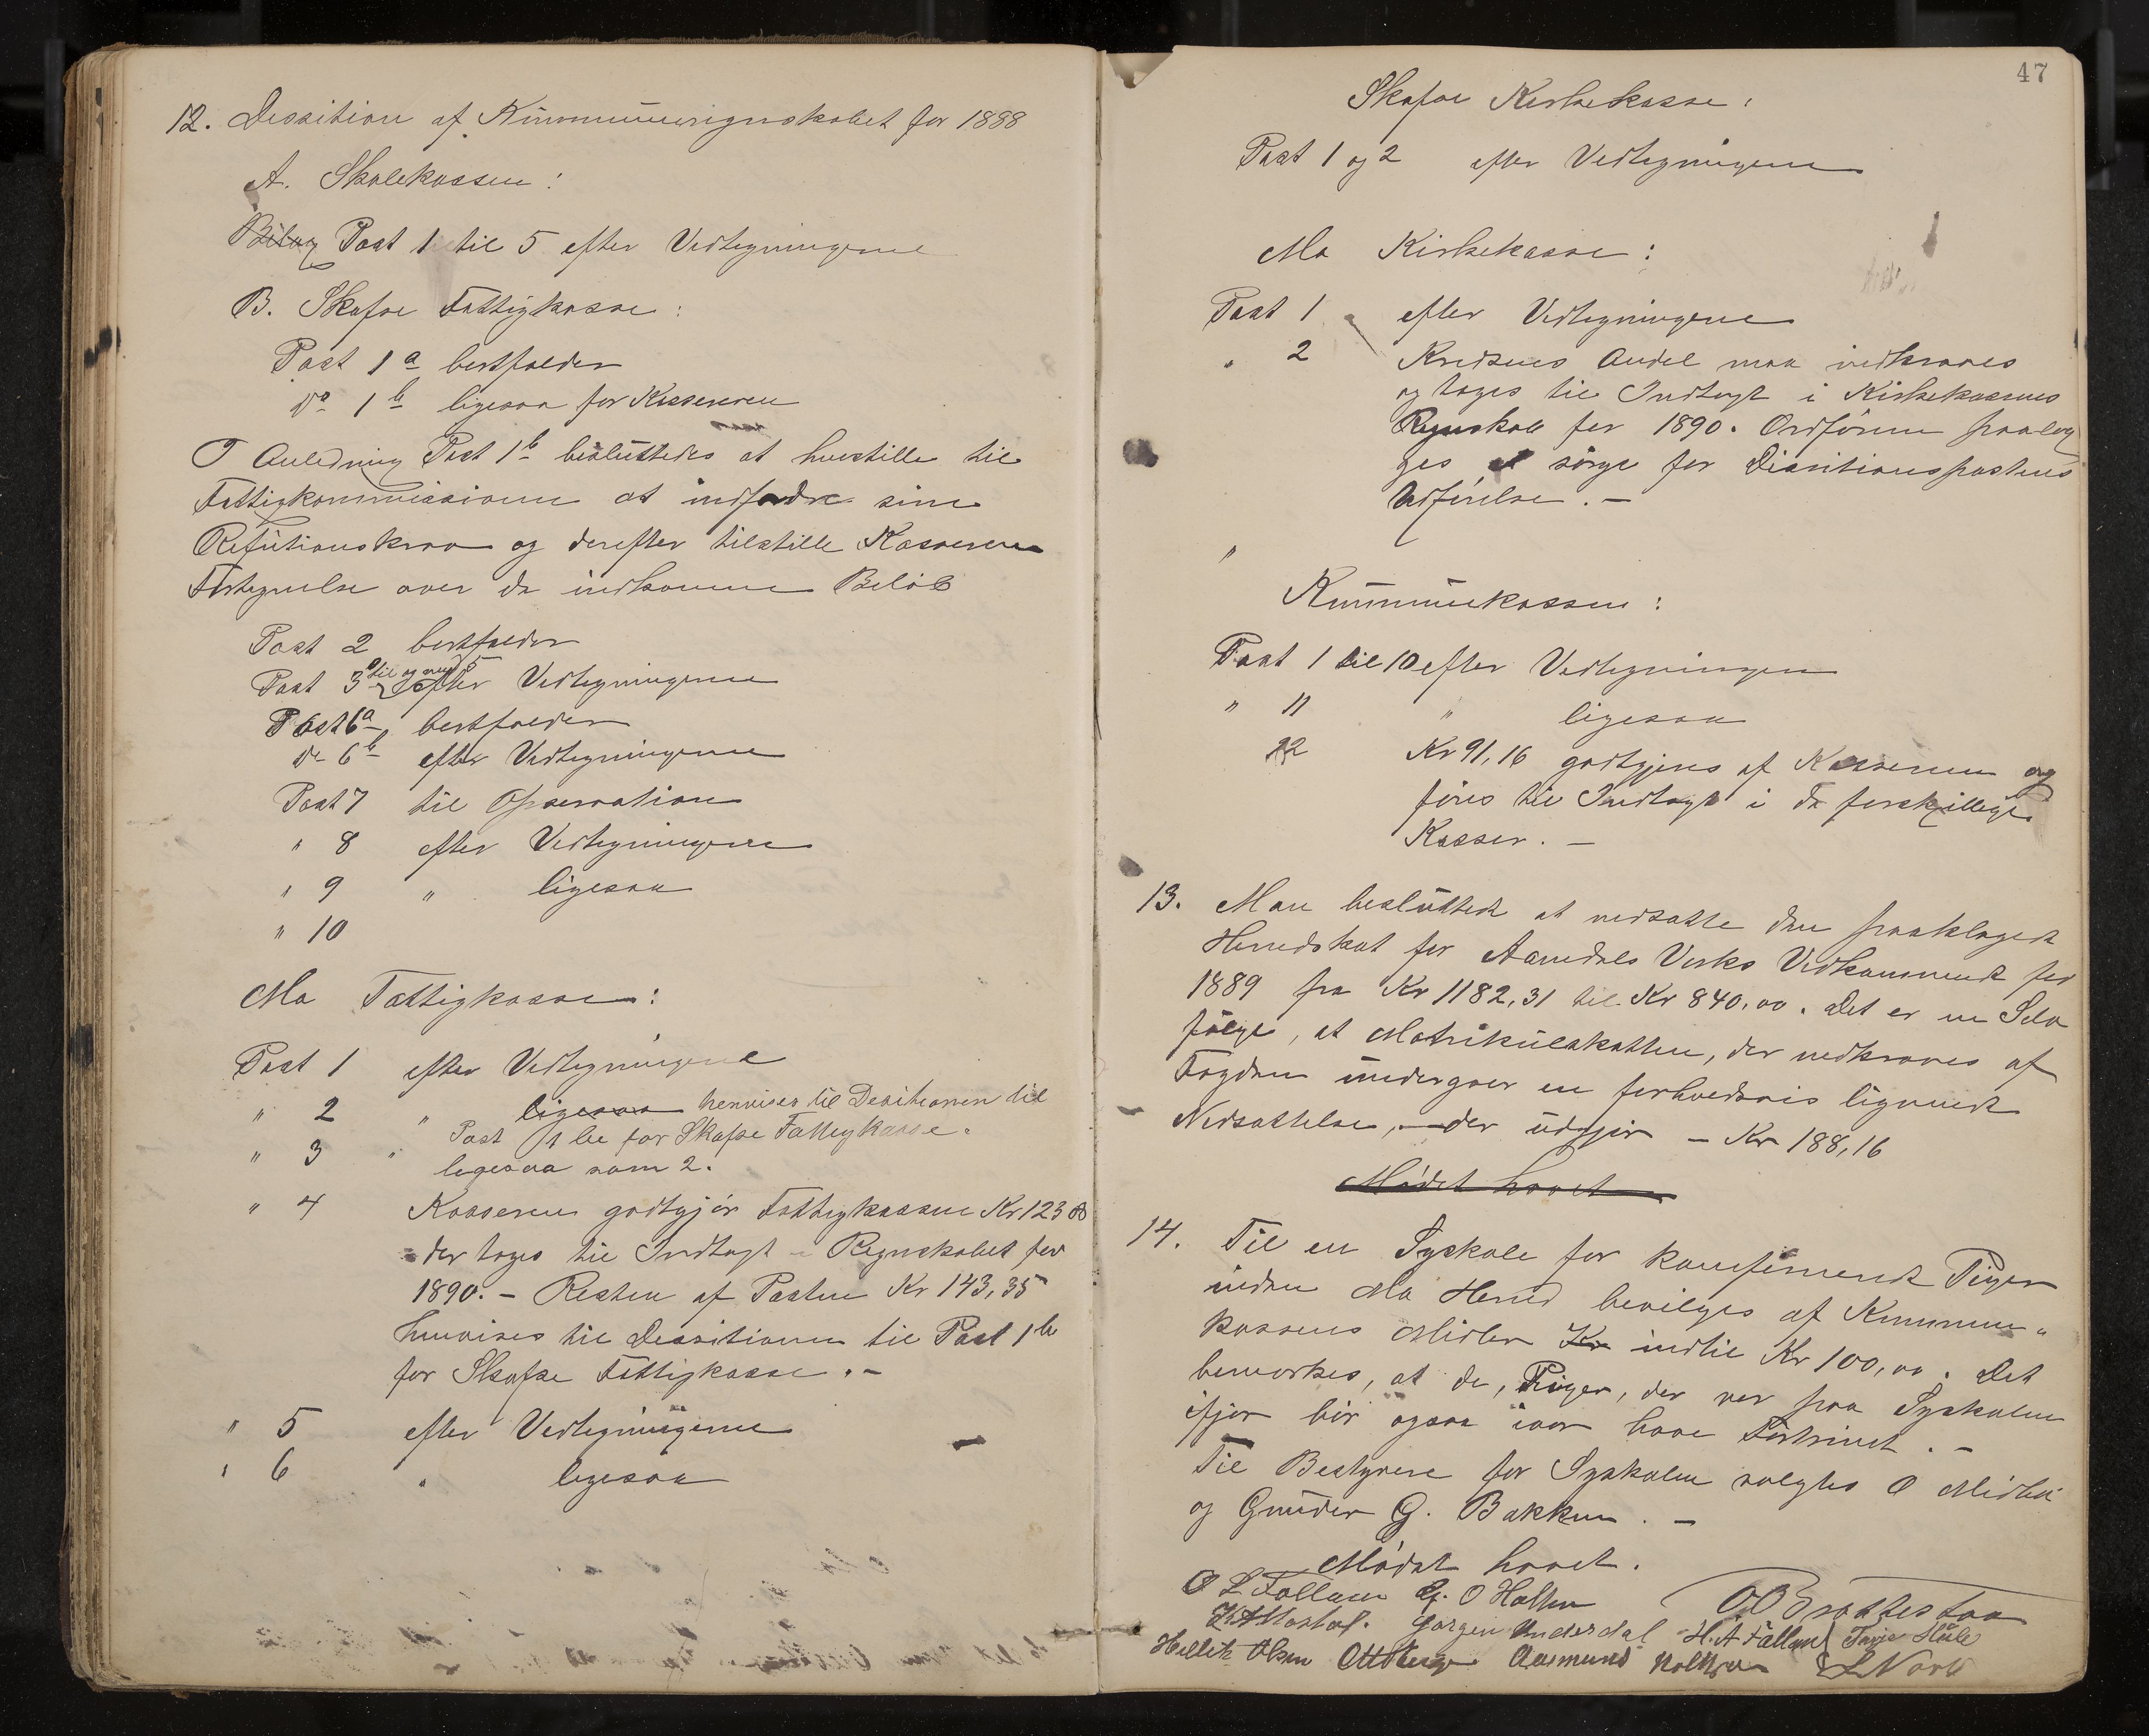 12. Desition af Kummuneregnskabet for 1888
A. Skolekassen:
Bilag Post 1 til 5 efter Vedtegningerne
B. Skafse Fattigkasse:
Post 1a bortfalder
Do 1b ligesaa for Kassereren
I Anledning Post 1b besluttedes at henstille til
Fattigkommissionen at indfordre sine
Refutionskrav og derefter tilstille Kassereren
Fortegnelse over de indkomne Beløb
Post 2 bortfalder
Post 3 til og med 5 efter Vedtegningerne
Post 6a bortfalder
Do 6b efter Vedtegningerne
Post 7 til Opservation
" 8 efter Vedtegningerne
" 9 " ligesaa
" 10
Mo Fattigkasse:
Post 1 efter Vedtegningerne
" 2 " ligesaa henvises til Desitionen til
Post 1 b for Skafse Fattigkasse.
" 3 " ligesaa som 2.
" 4 Kasseren godtgjør Fattigkassen Kr 123
der tages til Indtægt i Regnskabet for
1890. – Resten af Posten Kr 143,35
henvises til Desitionen til Post 1b
for Skafse Fattigkasse. –
" 5 efter Vedtegningerne
" 6 " ligesaa
47
Skafse Kirkekasse:
Post 1 og 2 efter Vedtegningerne
Mo Kirkekasse:
Post 1 efter Vedtegningerne
" 2 Kredsens Andel maa indkræves
og tages til Indtægt i Kirkekassens
Regnskab for 1890. Ordføren paalæg
ges at sørge for Disitionspostens
Udførelse. –
"
Kummunekassen:
Post 1 til 10 efter Vedtegningen
" 11 " ligesaa
12 Kr 91,16 godtgjøres af Kasseren og
føres til Indtægt i de forskjellige
Kasser. –
13. Man besluttede at nedsætte den paaklagede
Herredskat for Aamdals Verks Vedkommende for
1889 fra Kr 1182,31 til Kr 840,00. Det er en Selv
følge, at Matrikulskatten, der nedkræves af
Fogden undergaar en forholdsvis lignende
Nedsættelse, – der udgjør – Kr 188,16
Mødet hævet
14. Til en Syskole for konfirmerede Piger
inden Mo Herred bevilges af Kummune"
kassens Midler Kr indtil Kr 100,00. Det
bemærkes, at de, Piger, der var paa Syskolen
ifjor bør ogsaa iaar have Fortrinet. –
Til Bestyrere for Syskolen valgtes O Midbø
og Gunder G. Bakken. –
Mødet hævet.
O L Follaren G. O Halten O O Brattestaa
Jørgen Underdal H. A. Tarje
Hellik Olsen Aasmund